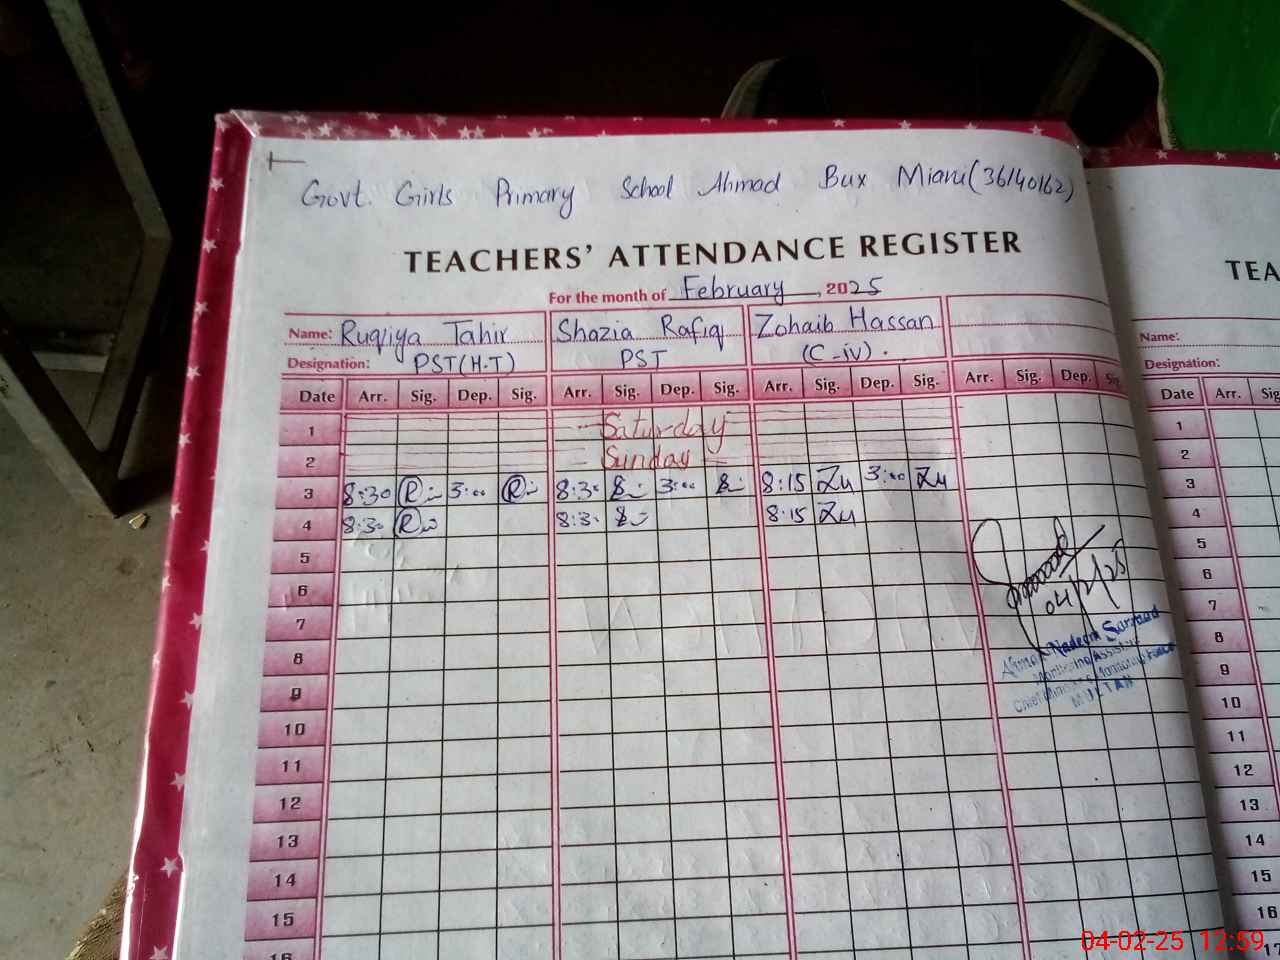 Govt. Girls Primary School Ahmad Bux Miani (36140162)
TEACHERS' ATTENDANCE REGISTER
For the month of February, 2025
Name: Ruqiya Tahir Shazia Rafiq Zohaib Hassan
Designation: PST(H.T) PST (C-iv).
Date Arr. Sig. Dep. Sig. Arr. Sig. Dep. Sig. Arr. Sig. Dep. Sig. Arr. Sig. Dep. Sig.
1 Saturday
2 Sunday
3 8:30 3:00 8:30 3:00 8:15 3:00
4 8:30 8:30 8:15
04/2/25
5
6
7
8
9
10
11
12
13
14
15
16
Nadeem Sarmad
Monitoring Assistant
Chief Minister's Monitoring Force
MULTAN
TEA
Name:
Designation:
Date Arr. Sig
1
2
3
4
5
6
7
8
9
10
11
12
13
14
15
16
17
04-02-25 12:59